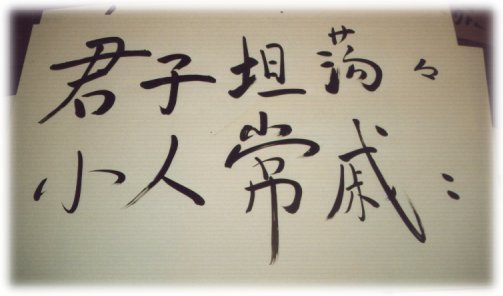 君子坦荡々
小人常戚: